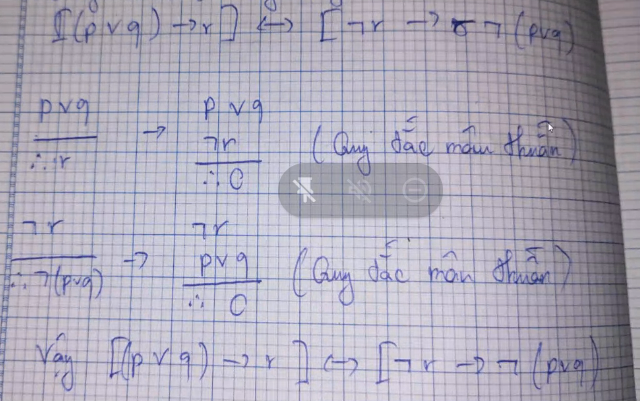 [(p∨q) → r] ↔ [¬r → ¬(p∨q)
p∨q → p∨q
¬r (Quy tắc mâu thuẫn)
∴ r ∴ 0
¬r → ¬r
p∨q (Quy tắc mâu thuẫn)
∴ ¬(p∨q) ∴ 0
Vậy [(p∨q) → r] ↔ [¬r → ¬(p∨q)